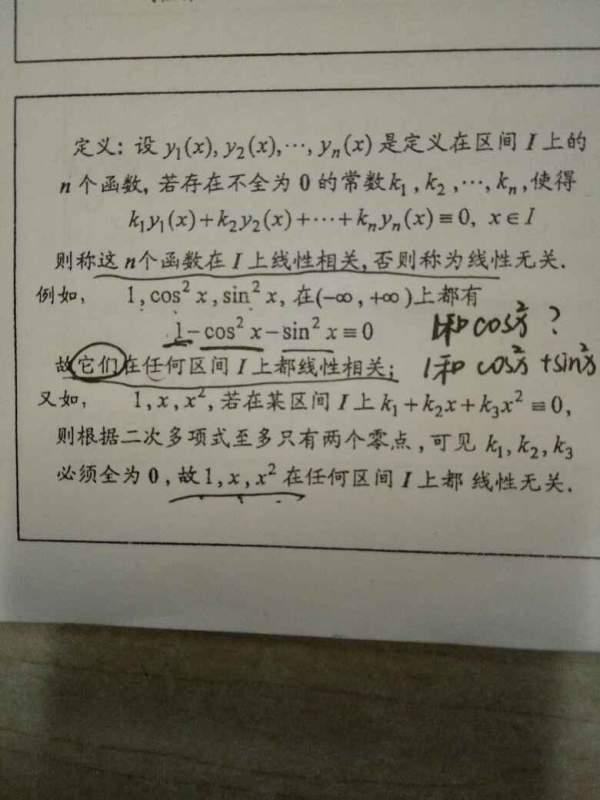 定义: 设 y₁(x), y₂(x), ···, yₙ(x) 是定义在区间 I 上的
n 个函数, 若存在不全为 0 的常数 k₁, k₂, ···, kₙ, 使得
k₁y₁(x)+k₂y₂(x)+···+kₙyₙ(x)≡0, x∈I
则称这 n个函数在 I 上线性相关, 否则称为线性无关.
例如, 1, cos²x, sin²x, 在(-∞, +∞)上都有
1-cos²x-sin²x≡0 1和cos²x?
故它们在任何区间 I 上都线性相关; 1和 cos²x+sin²x
又如, 1, x, x², 若在某区间 I 上 k₁+k₂x+k₃x²≡0,
则根据二次多项式至多只有两个零点, 可见 k₁, k₂, k₃
必须全为 0, 故 1, x, x² 在任何区间 I 上都 线性无关.